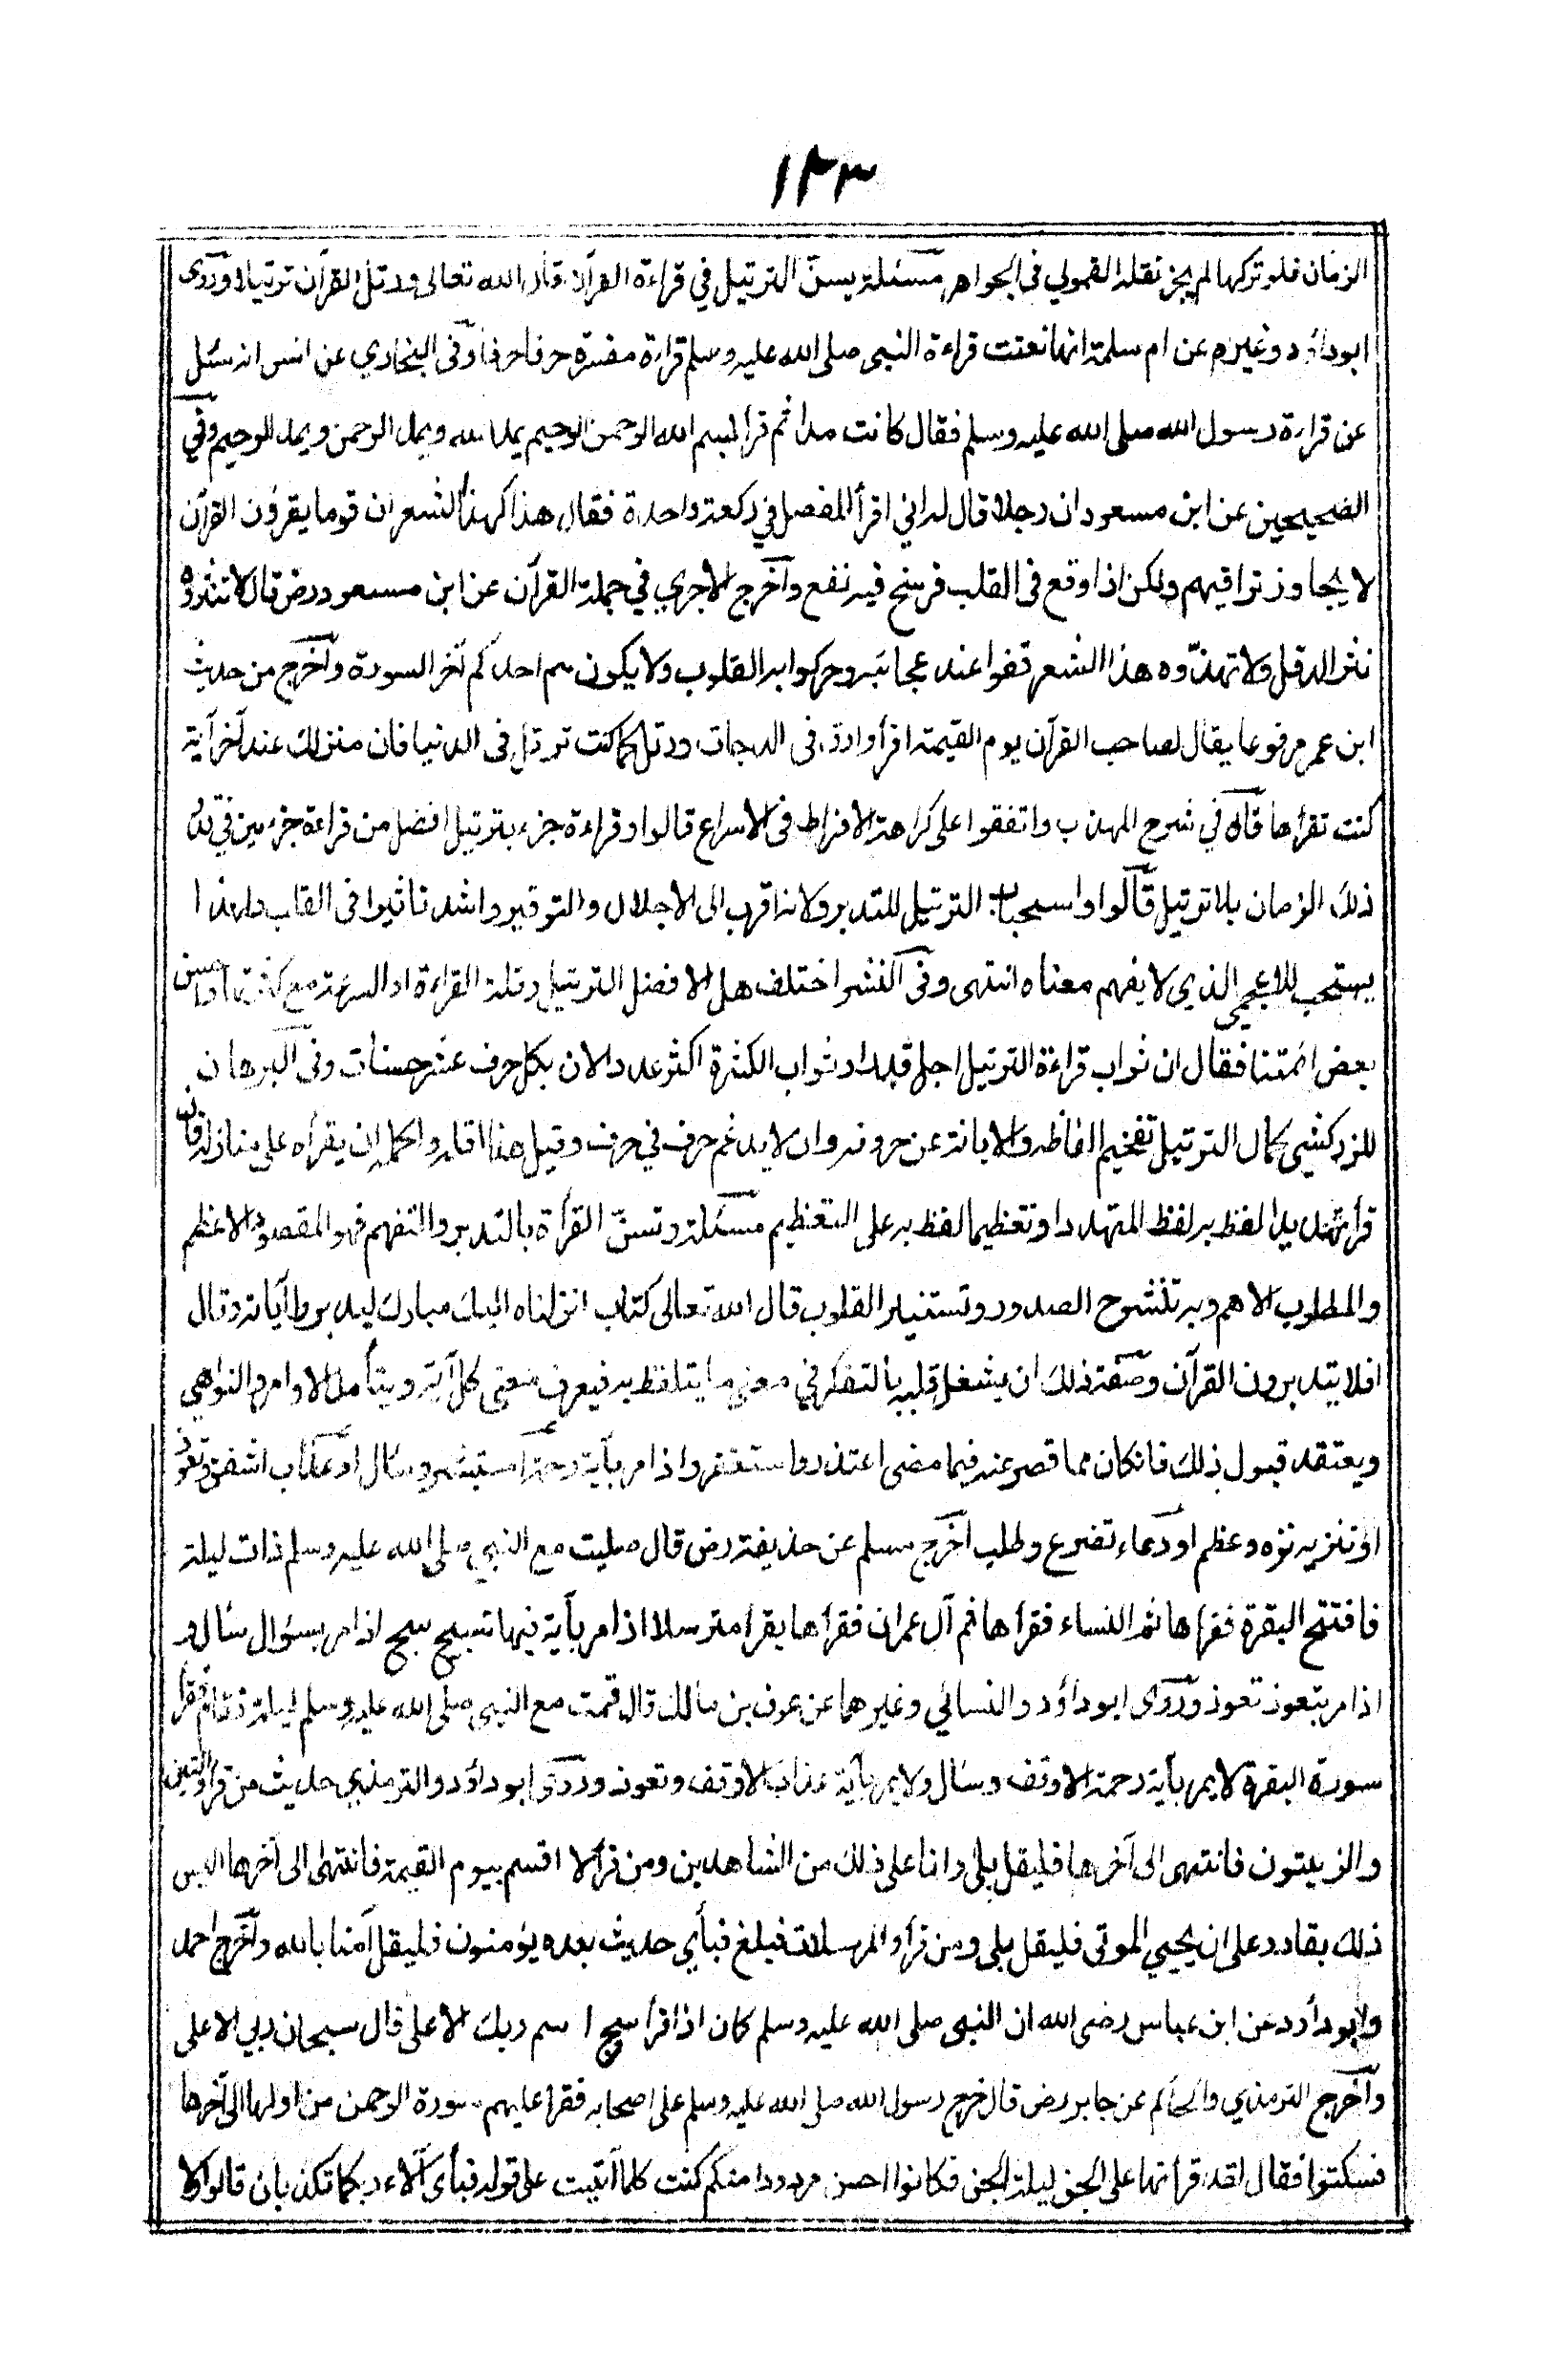 ١٢٣
الزمان فلو تركها لم يجز نقله القمولي فى الجواهر مسئلة يسن الترتيل في قراءة القرآن قال الله تعالى ورتل القرآن ترتيلا وروى
ابوداؤد وغيره عن ام سلمة انها نعتت قراءة النبي صلى الله عليه وسلم قراءة مفسرة حرفا حرفا وفى البخاري عن انس انه سئل
عن قراءة رسول الله صلى الله عليه وسلم فقال كانت مدا ثم قرأ بسم الله الرحمن الرحيم يمد الله ويمد الرحمن ويمد الرحيم وفي
الصحيحين عن ابن مسعود ان رجلا قال له اني اقرأ المفصل في ركعة واحدة فقال هذا كهذ الشعر ان قوما يقرؤن القرآن
لا يجاوز تراقيهم ولكن اذا وقع فى القلب فرسخ فيه نفع وآخرج الاجري في حملة القرآن عن ابن مسعود رض قال لا تنثروه
نثر الدقل ولا تهذّوه هذا الشعر قفوا عند عجائبه وحركوا به القلوب ولا يكون هم احدكم آخر السورة وآخرج من حديث
ابن عمر مرفوعا يقال لصاحب القرآن يوم القيمة اقرأ وارق فى الدرجات ورتل كما كنت ترتل فى الدنيا فان منزلك عند آخر آية
كنت تقرأها قال في شرح المهذب واتفقوا على كراهة الافراط فى الاسراع قالوا وقراءة جزء بترتيل افضل من قراءة جزءين في قدر
ذلك الزمان بلا ترتيل قالوا واستحباب الترتيل للتدبر ولانه اقرب الى الاجلال والتوقير واشد تاثيرا فى القلب ولهذا
يستحب للاعجمي الذي لا يفهم معناه انتهى وفى النشر اختلف هل الافضل الترتيل وقلة القراءة او السرعة مع كثرتها واحسن
بعض ائمتنا فقال ان ثواب قراءة الترتيل اجل قدرا وثواب الكثرة اكثر عددا لان بكل حرف عشر حسنات وفى البرهان
للزركشي كمال الترتيل تفخيم الفاظه والابانة عن حروفه وان لا يدغم حرف في حرف وقيل هذا اقله واكمله ان يقرأه على منازله فان
قرأ تهديدا لفظ به لفظ المتهدد او تعظيما لفظ به على التعظيم مسئلة وتسن القرأة بالتدبر والتفهم فهو المقصود الاعظم
والمطلوب الاهم وبه تنشرح الصدور وتستنير القلوب قال الله تعالى كتاب انزلناه اليك مبارك ليدبروا آياته وقال
افلا يتدبرون القرآن وصفة ذلك ان يشغل قلبه بالتفكر في معنى ما يتلفظ به فيعرف معنى كل آية ويتأمل الاوامر والنواهي
ويعتقد قبول ذلك فانكان مما قصر عنه فيما مضى اعتذر واستغفر واذا مر بآية رحمة استبشر وسأل او عذاب اشفق وتعوذ
او تنزيه نزه وعظم او دعاء تضرع وطلب اخرج مسلم عن حذيفة رض قال صليت مع النبي صلى الله عليه وسلم ذات ليلة
فافتتح البقرة فقرأها ثم النساء فقرأها ثم آل عمران فقرأها يقرأ مترسلا اذا مر بآية فيها تسبيح سبح اذا مر بسؤال سأل و
اذا مر بتعوذ تعوذ وروى ابوداؤد والنسائي وغيرهما عن عوف بن مالك قال قمت مع النبي صلى الله عليه وسلم ليلة فقام فقرأ
سورة البقرة لا يمر بآية رحمة الا وقف وسأل ولا يمر بآية عذاب الا وقف وتعوذ وروى ابوداؤد والترمذي حديث من قرأ والتين
والزيتون فانتهى الى آخرها فليقل بلى وانا على ذلك من الشاهدين ومن قرأ لا اقسم بيوم القيمة فانتهى الى آخرها اليس
ذلك بقادر على ان يحيي الموتى فليقل بلى ومن قرأ والمرسلات فبلغ فبأي حديث بعده يؤمنون فليقل آمنا بالله وآخرج احمد
وابوداؤد عن ابن عباس رضى الله ان النبى صلى الله عليه وسلم كان اذا قرأ سبح اسم ربك الاعلى قال سبحان ربي الاعلى
وآخرج الترمذي والحاكم عن جابر رض قال خرج رسول الله صلى الله عليه وسلم على اصحابه فقرأ عليهم سورة الرحمن من اولها الى آخرها
فسكتوا فقال لقد قرأتها على الجن ليلة الجن فكانوا احسن مردودا منكم كنت كلما آتيت على قوله فبأى آلاء ربكما تكذبان قالوا ولا